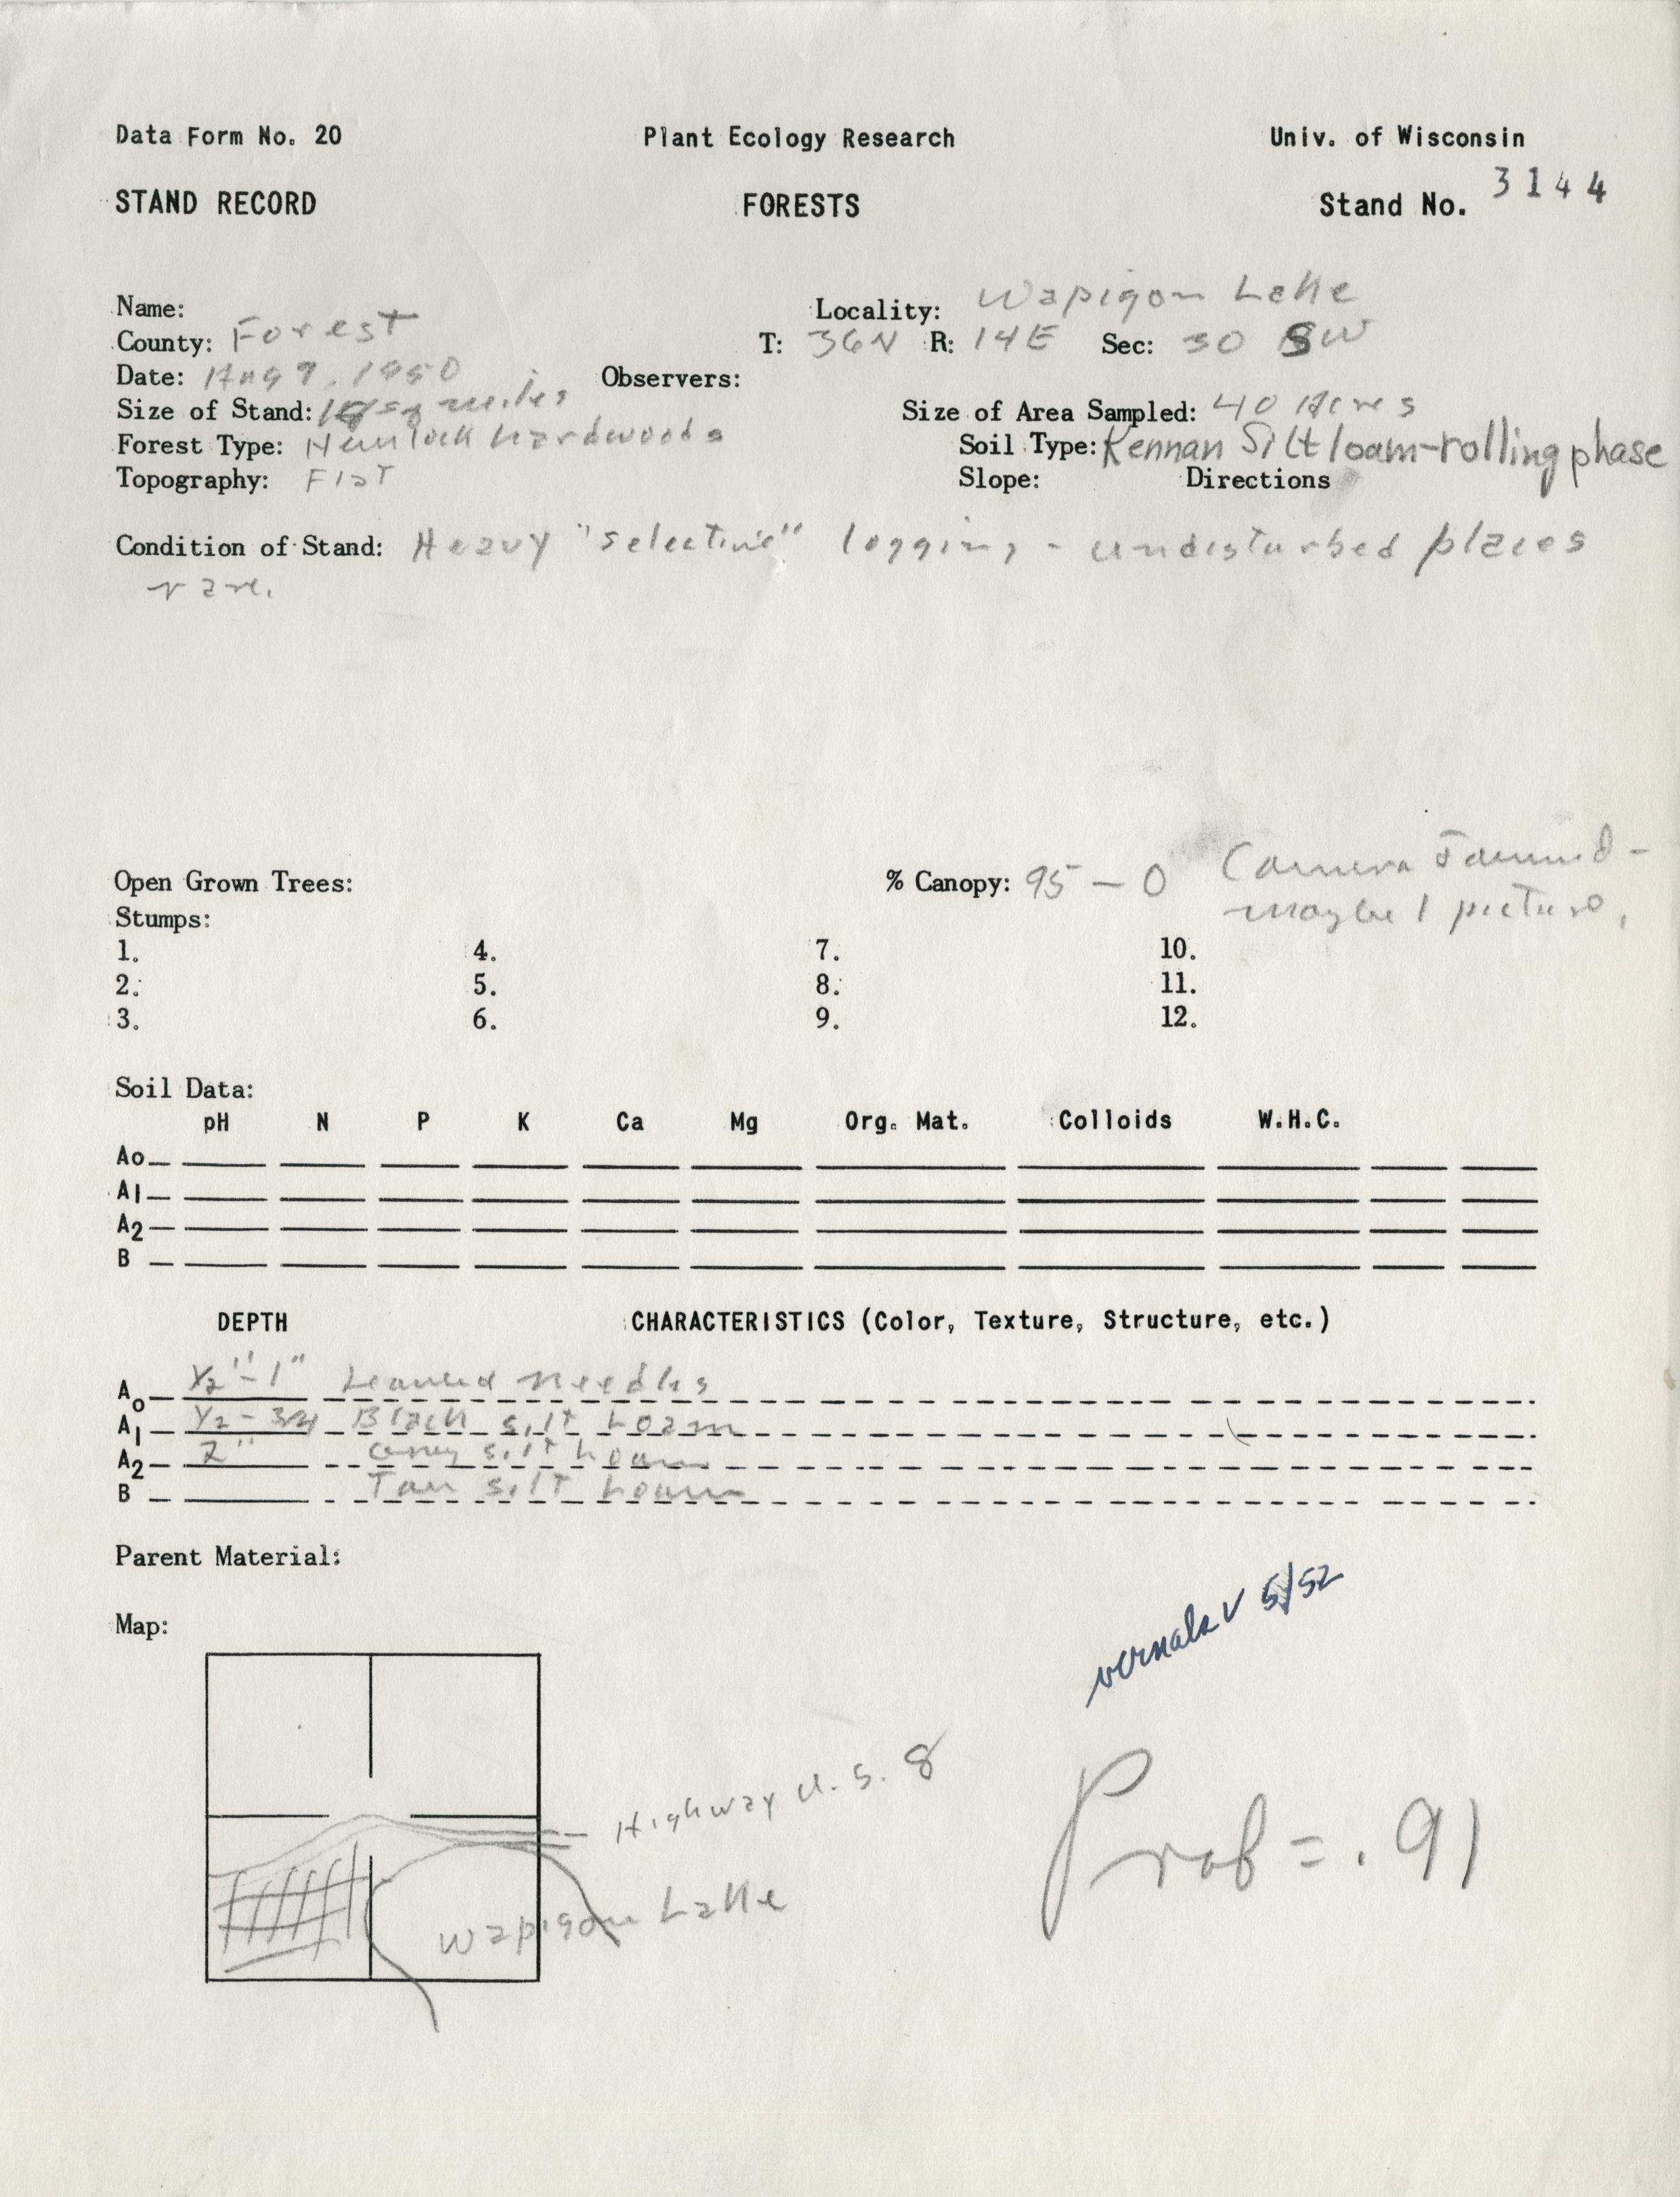 Data Form No. 20 Plant Ecology Research Univ. of Wisconsin
STAND RECORD FORESTS Stand No. 3144
Name: Locality: Wapigon Lake
County: Forest T: 36N R: 14E Sec: 30 SW
Date: Aug 9, 1950 Observers:
Size of Stand: sq miles Size of Area Sampled: 40 Acres
Forest Type: Hemlock hardwoods Soil Type: Kennan Silt loam-rolling phase
Topography: Flat Slope: Directions
Condition of Stand: Heavy "selective" logging - undisturbed places
rare.
Open Grown Trees: % Canopy: 95 - 0 Camera Jammed -
Stumps: maybe 1 picture.
1. 4. 7. 10.
2. 5. 8. 11.
3. 6. 9. 12.
Soil Data:
pH N P K Ca Mg Org. Mat. Colloids W.H.C.
Ao
A1
A2
B
DEPTH CHARACTERISTICS (Color, Texture, Structure, etc.)
Ao 1/2"-1" Needles
A1 1/2-3/4 Black silt Loam
A2 2" Grey silt Loam
B Tan silt Loam
Parent Material:
vernals v 5/52
Map:
Highway U.S. 8
Prob = .91
Wapigon Lake